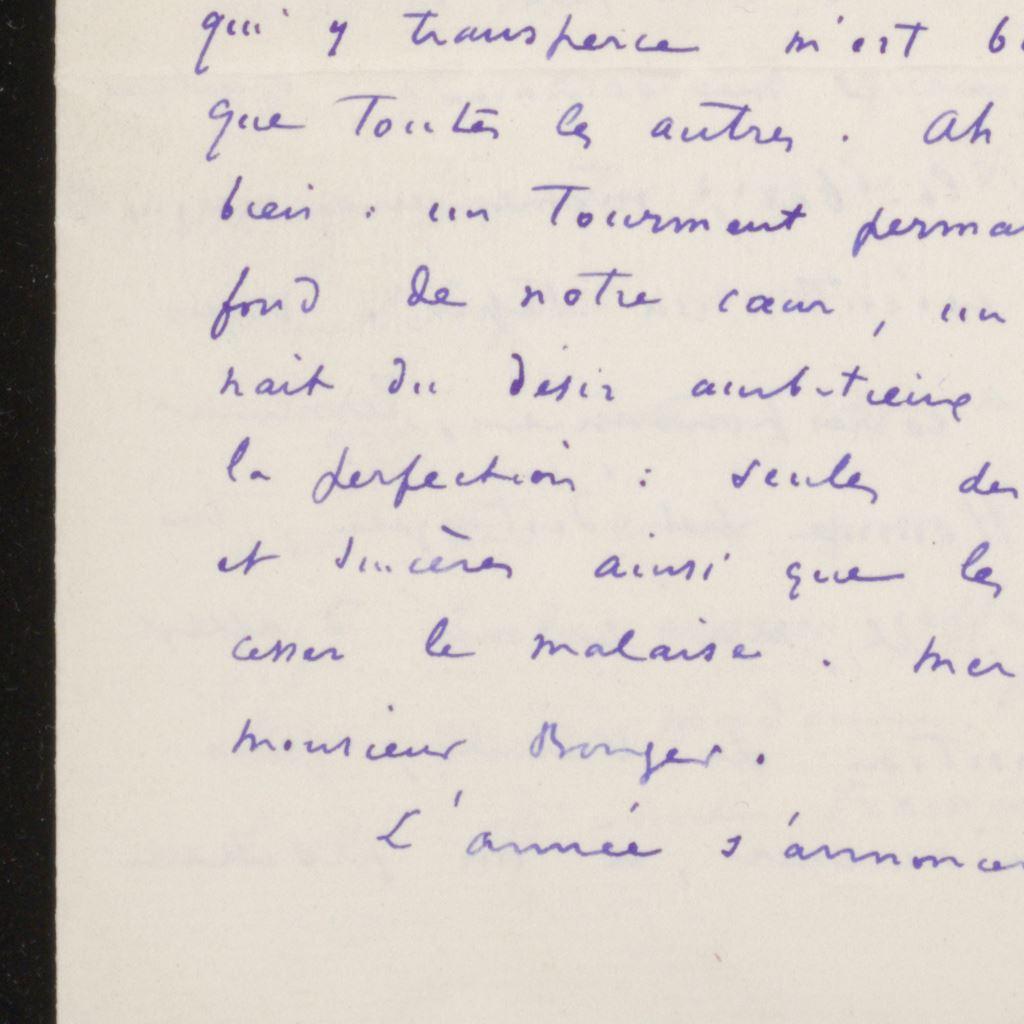 qui y transperce m'est b
que toutes les autres. Ah
bien : un Tourment perma
fond de notre cœur, un
nait du désir ambitieux
la perfection : seules des
et sincères ainsi que les
cesser le malaise. Mer
monsieur Bonger.
L'année s'annonce